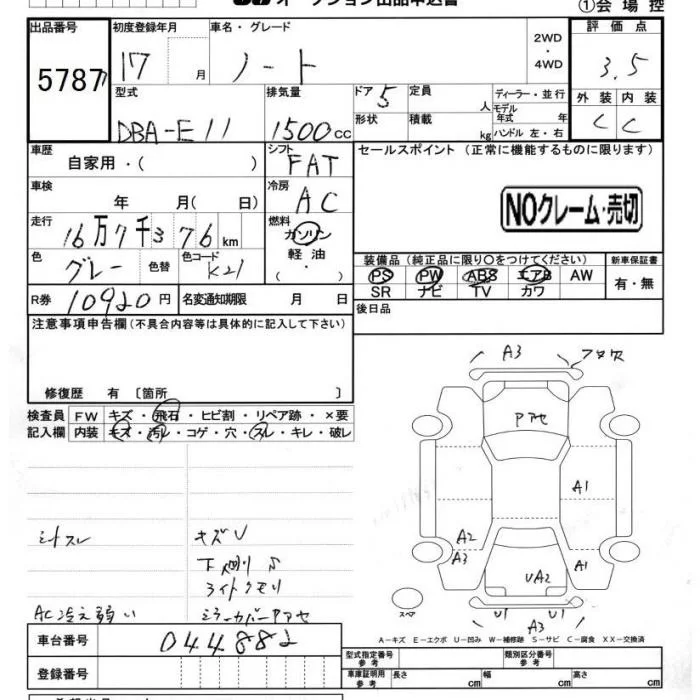 オークション出品申込書
①会場控
出品番号 初度登録年月 車名・グレード 2WD・4WD 評価点
5787 17 月 ノート 3.5
型式 排気量 ドア 5 定員 人 ディーラー・並行 外装 内装
DBA-E11 1500cc 形状 積載 kg モデル年式 年 ハンドル 左・右 C C
車歴 自家用・( ) シフト FAT セールスポイント (正常に機能するものに限ります)
車検 年 月( 日) 冷房 AC
NOクレーム・売切
走行 16万7千376km 燃料 ガソリン・軽油・( )
色 グレー 色替 色コード K21
装備品(純正品に限り○をつけてください) 新車保証書
PS PW ABS エアB AW 有・無
SR ナビ TV カワ
R券 10920円 名変通知期限 月 日 後日品
注意事項申告欄(不具合内容等は具体的に記入して下さい)
修復歴 有 〔箇所 〕
検査員記入欄 FW キズ・飛石・ヒビ割・リペア跡・×要
内装 キズ・汚レ・コゲ・穴・スレ・キレ・破レ
シートスレ キズU
ライトクモリ
AC冷え弱い ミラーカバーアセ
A3
Pアセ
A1
A2
A3 A1
UA2
U1 U1
A3
スペア
A-キズ E-エクボ U-凹み W-補修跡 S-サビ C-腐食 XX-交換済
車台番号 044882
登録番号
型式指定番号 参考 類別区分番号 参考
車庫証明用 参考 長さ cm 幅 cm 高さ cm